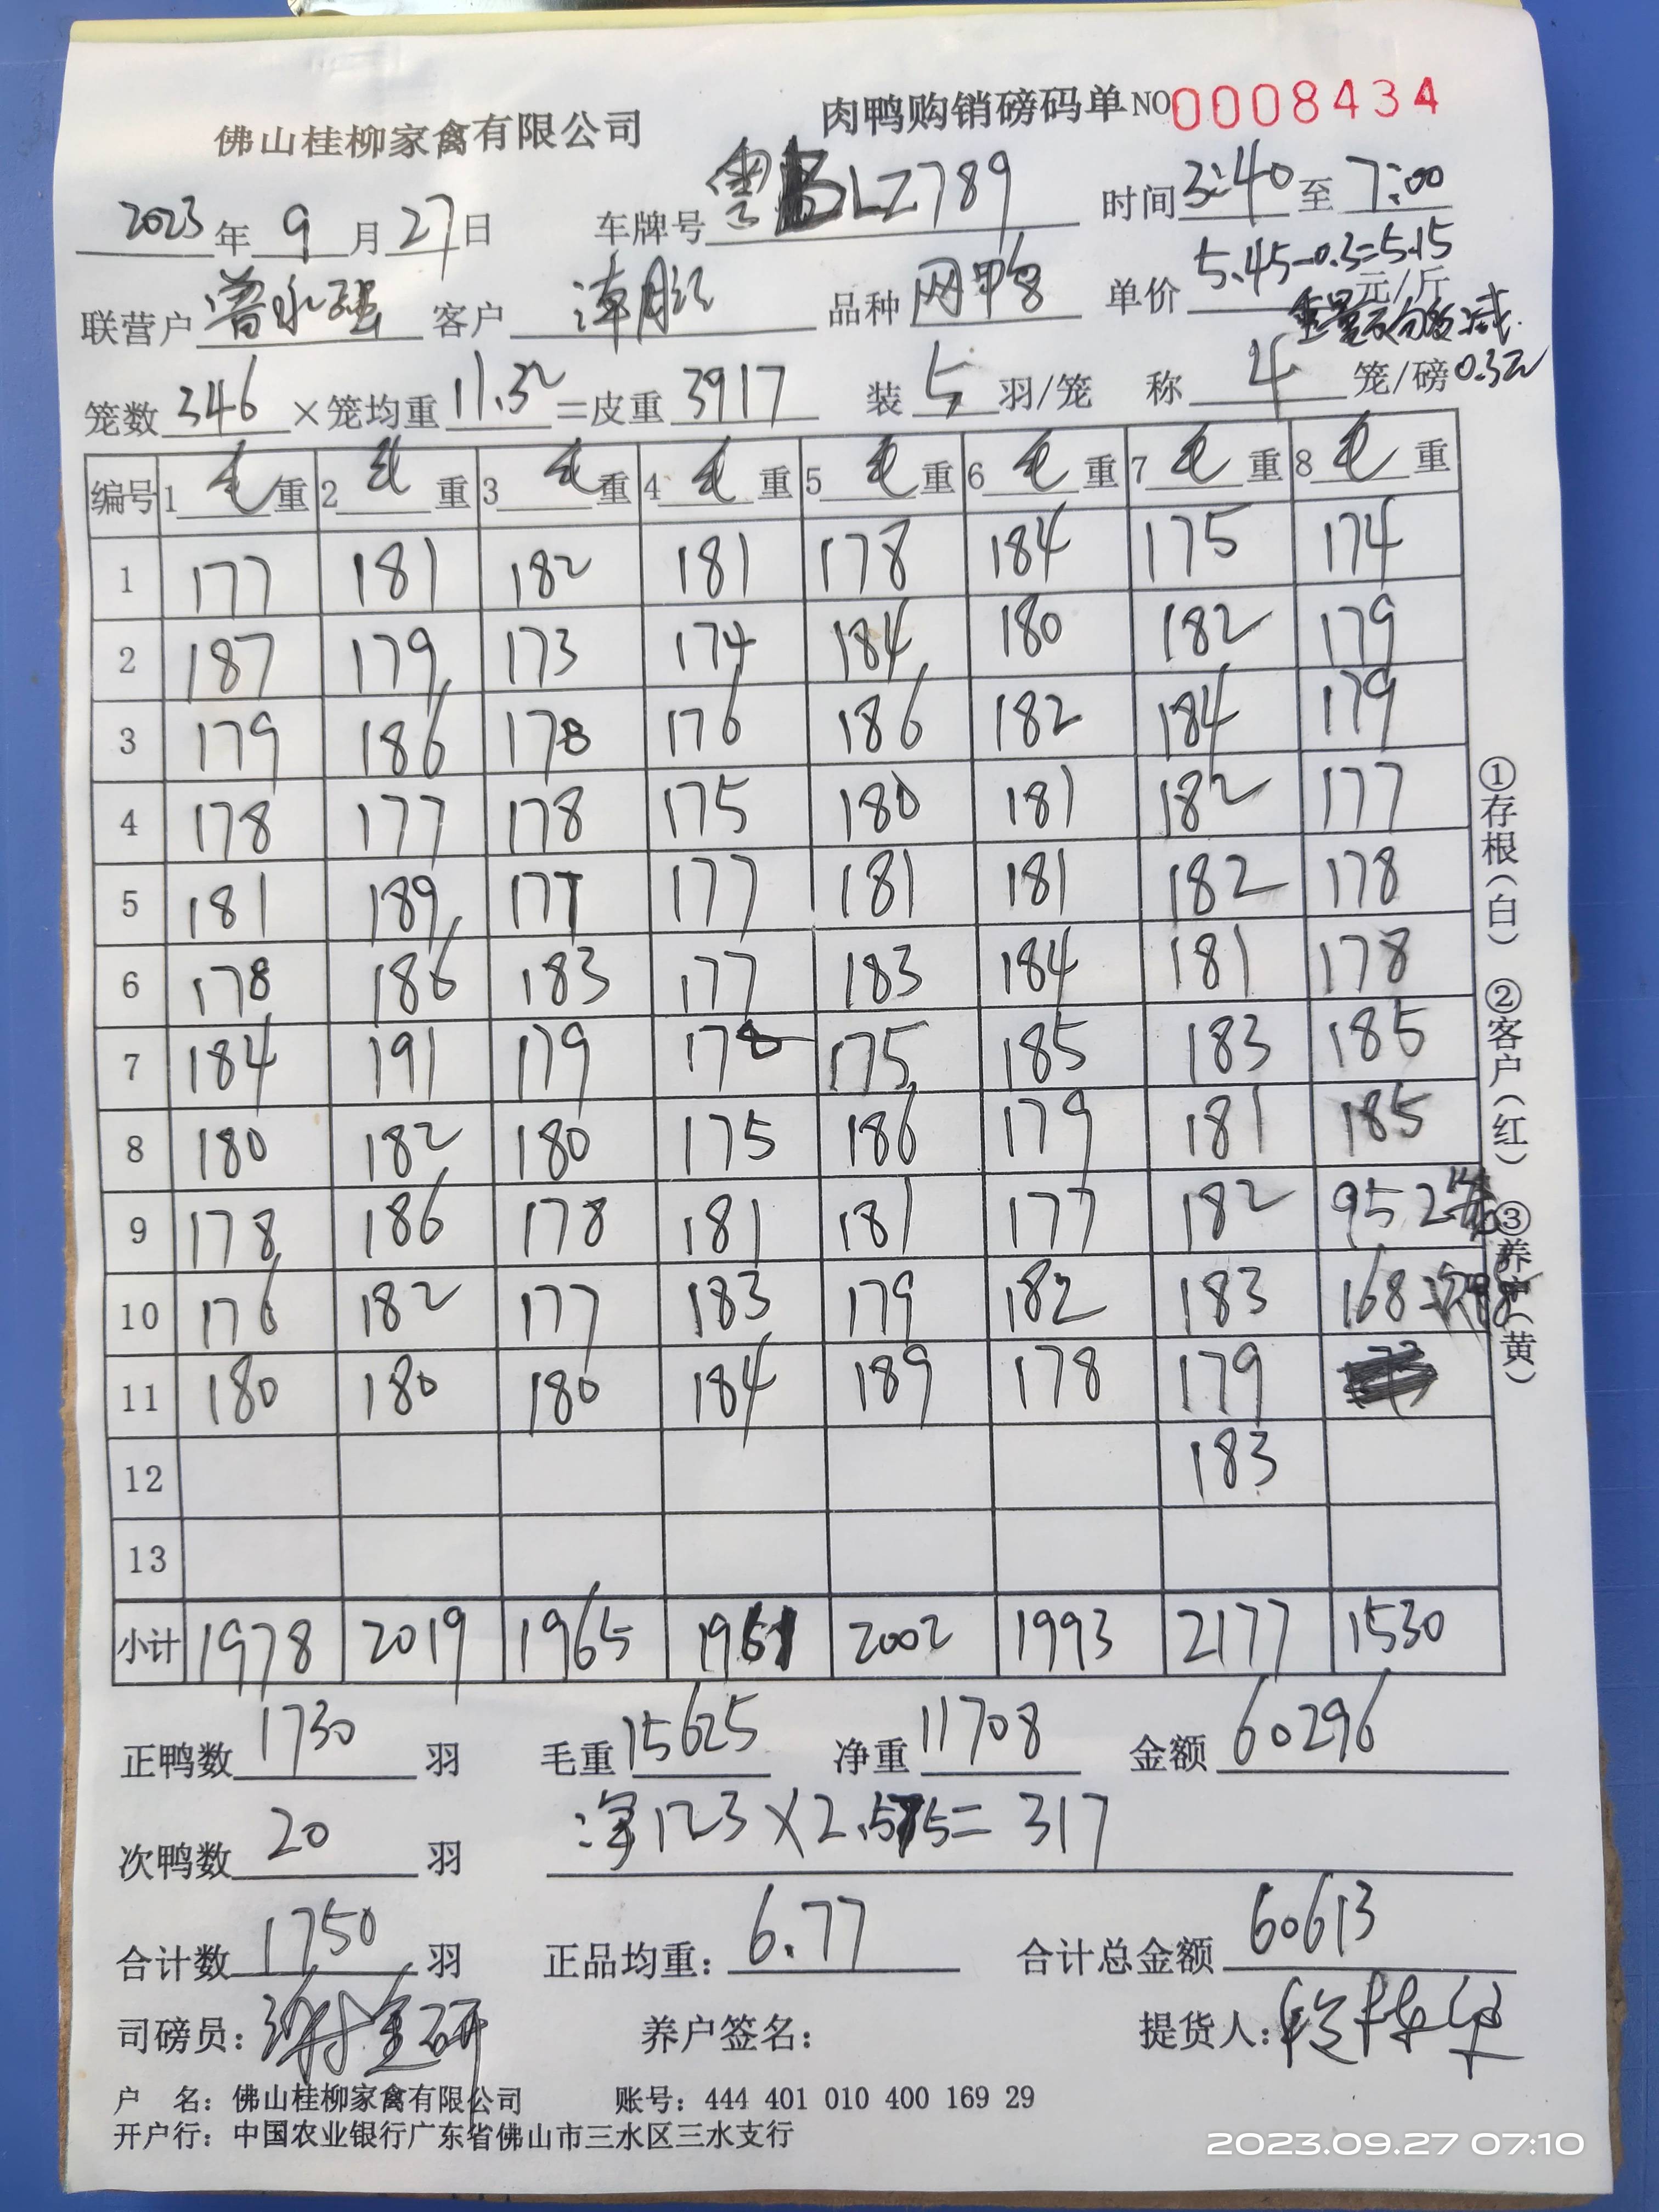 佛山桂柳家禽有限公司 肉鸭购销磅码单 NO 0008434
2023年9月27日 车牌号 粤 LZ789 时间3:40至7:00
联营户 曾永强 客户 谭胜 品种 网鸭 单价 5.45-0.3=5.15元/斤
减
笼数346×笼均重11.32=皮重3917 装5羽/笼 称4笼/磅 0.3元
编号 1毛重 2毛重 3毛重 4毛重 5毛重 6毛重 7毛重 8毛重
1 177 181 182 181 178 184 175 174
2 187 179 173 174 184 180 182 179
3 179 186 178 176 186 182 184 179
4 178 177 178 175 180 181 182 177
5 181 189 177 177 181 181 182 178
6 178 186 183 177 183 184 181 178
7 184 191 179 178 175 185 183 185
8 180 182 180 175 186 179 181 185
9 178 186 178 181 181 177 182 95 2
10 176 182 177 183 179 182 183 168 次
11 180 180 180 184 189 178 179
12 183
13
小计 1978 2019 1965 1961 2002 1993 2177 1530
正鸭数1730羽 毛重15625 净重11708 金额60296
次鸭数20羽 净123×2.575=317
合计数1750羽 正品均重：6.77 合计总金额60613
司磅员：谢金研 养户签名： 提货人：
户 名：佛山桂柳家禽有限公司 账号：444 401 010 400 169 29
开户行：中国农业银行广东省佛山市三水区三水支行
①存根（白） ②客户（红） ③养户（黄）
2023.09.27 07:10